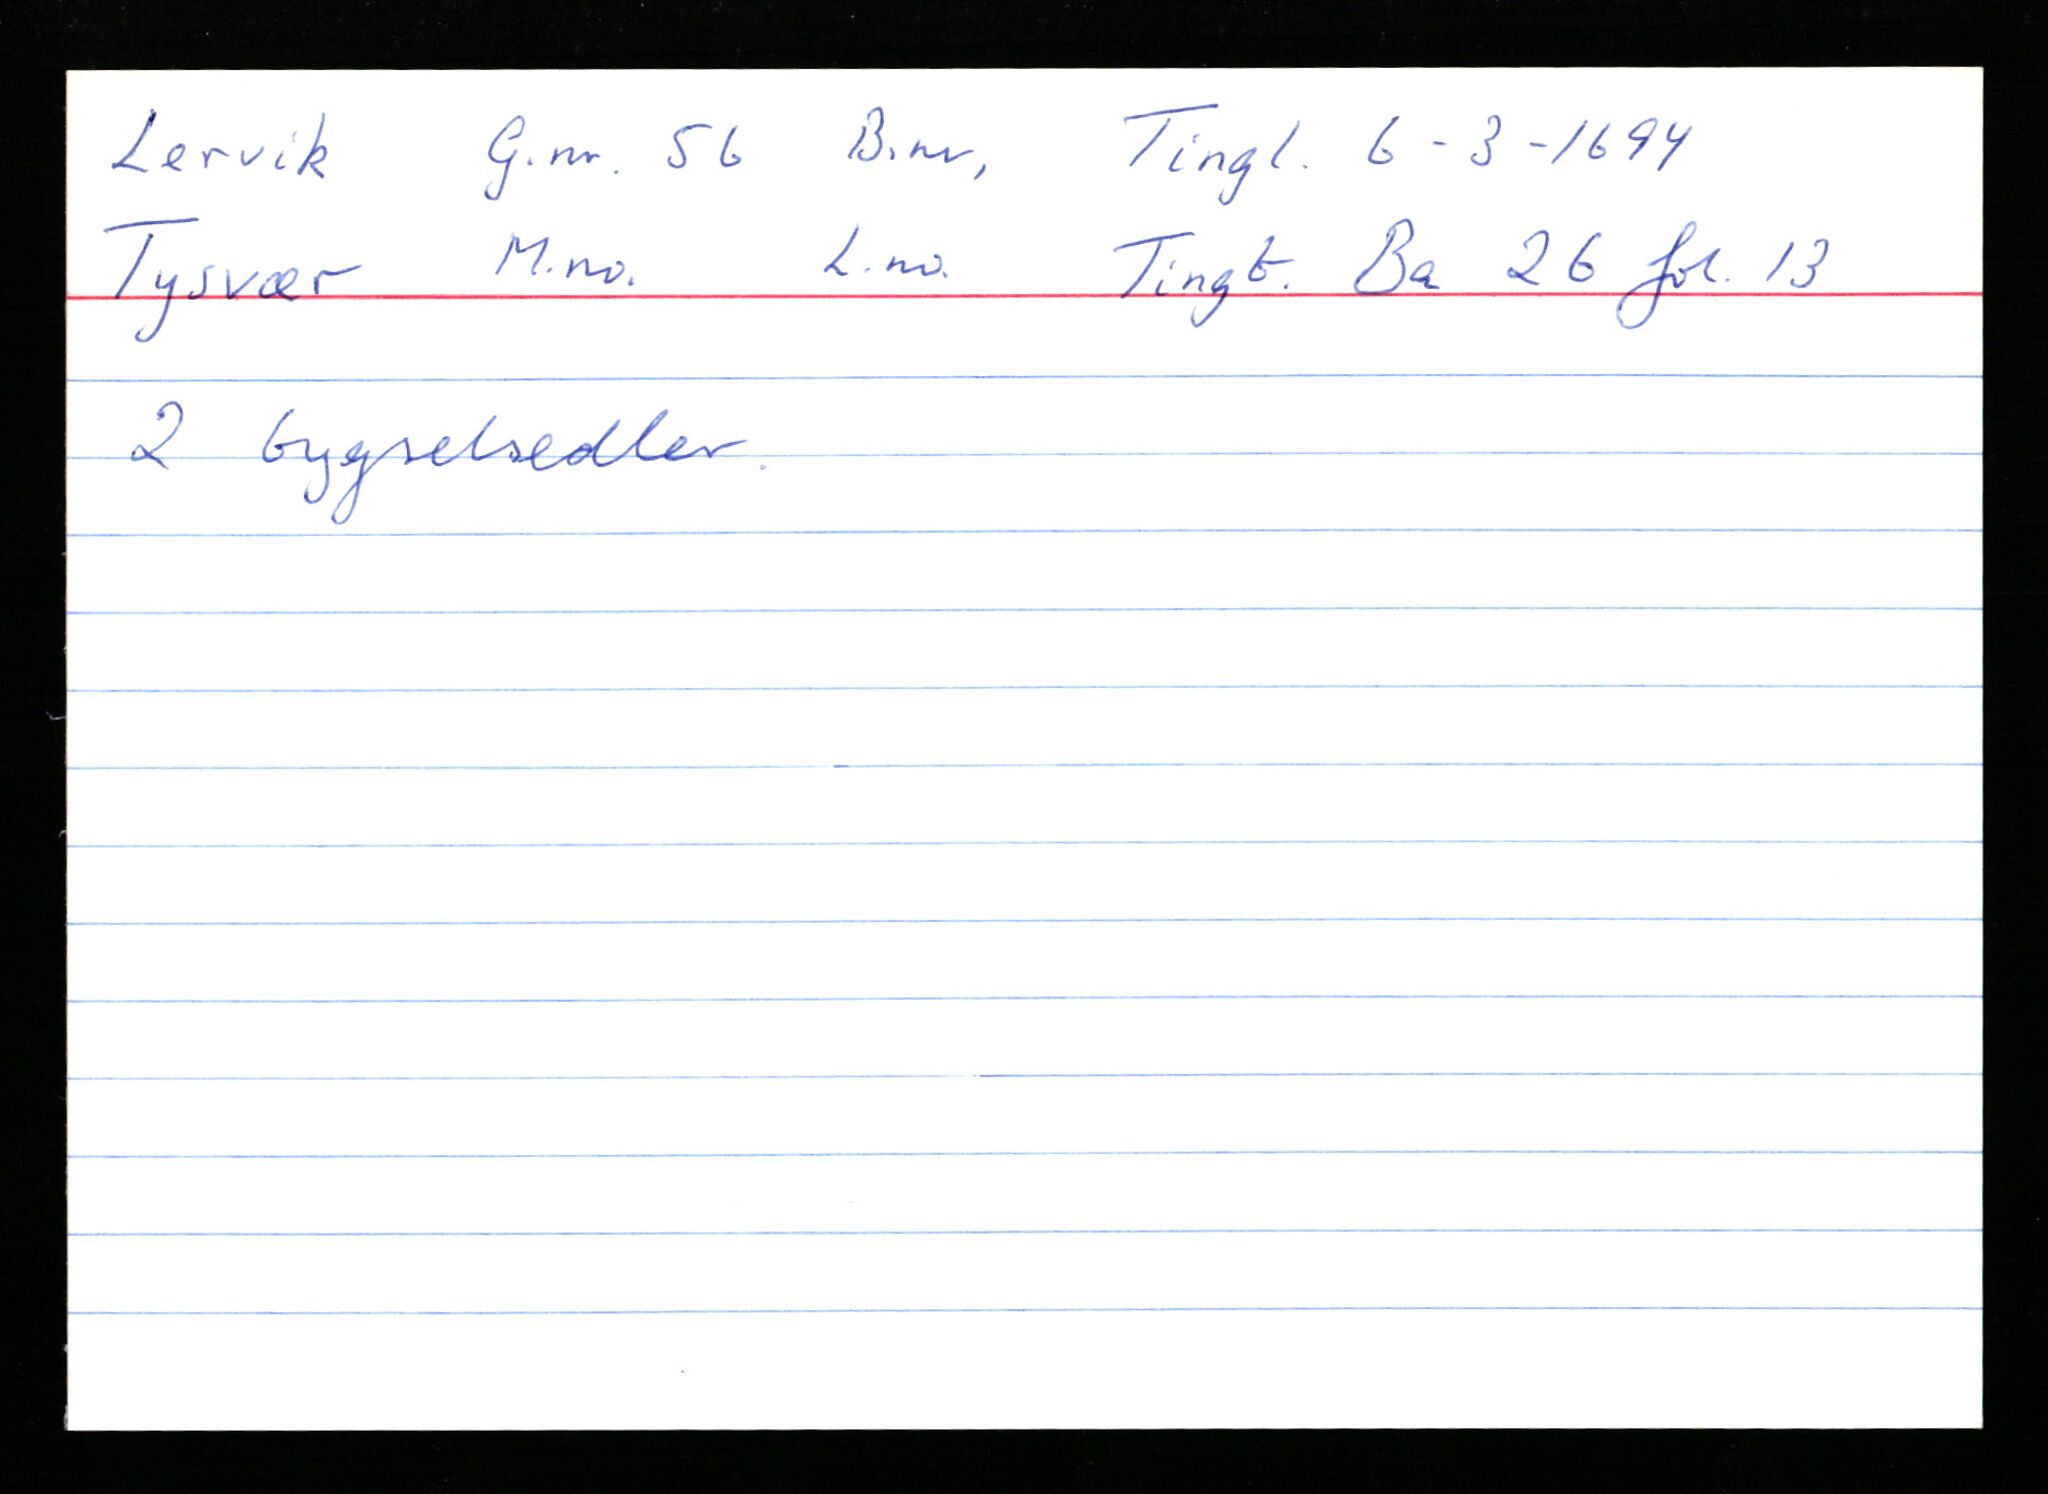 Lervik G.nr. 56 B.nr, Tingl. 6-3-1694
Tysvær M.no. L.no. Tingb. Ba 26 fol. 13
2 bygselsedler.